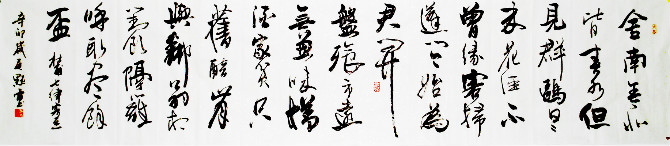 舍南舍北
皆春水但
見群鷗日日
来花徑不
曾緣客掃
蓬門今始為
君開
盤飧市遠
無兼味樽
酒家貧只
舊醅肯
與鄰翁相
對飲隔籬
呼取盡餘
杯 杜甫七律客至
辛卯歲